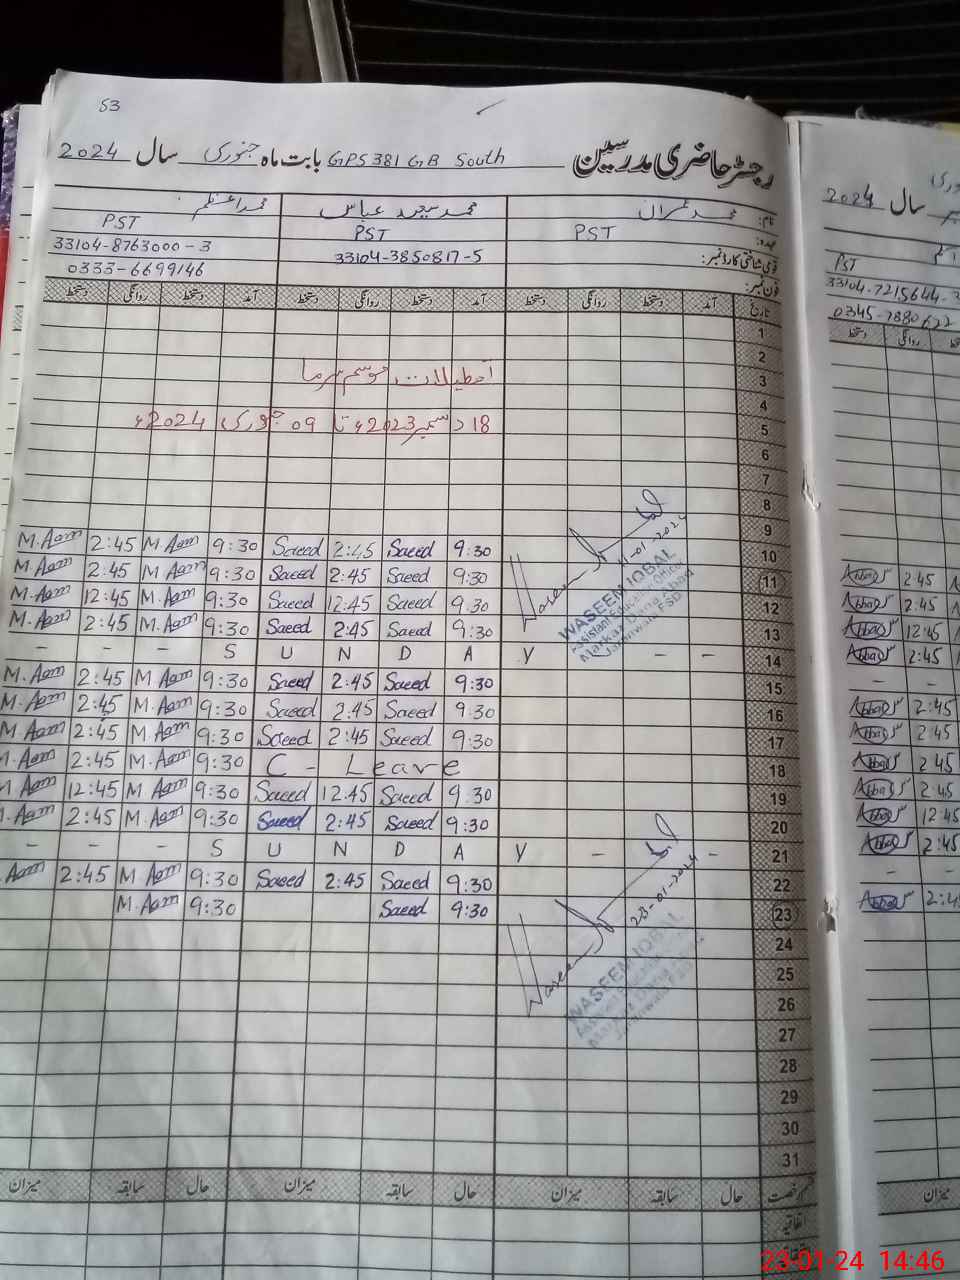 53
رجسٹر حاضری مدرسین GPS 381 GB South بابت ماہ جنوری سال 2024
نام: محمد عمران محمد سعید عباس محمد اعظم
عہدہ: PST PST PST
قومی شناختی کارڈ نمبر: 33104-3850817-5 33104-8763000-3
فون نمبر: 0333-6699146
تاریخ آمد دستخط روانگی دستخط آمد دستخط روانگی دستخط آمد دستخط روانگی دستخط
1
2
تعطیلات موسم سرما
3
4
18 دسمبر 2023ء تا 09 جنوری 2024ء
5
6
7
8
9
M.Aam 2:45 M.Aam 9:30 Saeed 2:45 Saeed 9:30 10
M.Aam 2:45 M.Aam 9:30 Saeed 2:45 Saeed 9:30 11
M.Aam 12:45 M.Aam 9:30 Saeed 12:45 Saeed 9:30 12
M.Aam 2:45 M.Aam 9:30 Saeed 2:45 Saeed 9:30 13
- - - S U N D A Y - - - 14
M.Aam 2:45 M.Aam 9:30 Saeed 2:45 Saeed 9:30 15
M.Aam 2:45 M.Aam 9:30 Saeed 2:45 Saeed 9:30 16
M.Aam 2:45 M.Aam 9:30 Saeed 2:45 Saeed 9:30 17
M.Aam 2:45 M.Aam 9:30 C - Leave 18
M.Aam 12:45 M Aam 9:30 Saeed 12.45 Saeed 9.30 19
M.Aam 2:45 M.Aam 9:30 Saeed 2:45 Saeed 9:30 20
- - - S U N D A Y - - 21
Aam 2:45 M Aam 9:30 Saeed 2:45 Saeed 9:30 22
M.Aam 9:30 Saeed 9:30 23
24
25
26
27
28
29
30
31
Waseem
11-01-2024
WASEEM IQBAL
Assistant Education Officer
Markaz
Jaranwala FSD
Waseem
23-01-2024
WASEEM IQBAL
Assistant Education
Markaz
Jaranwala
حال سابقہ میزان حال سابقہ میزان حال سابقہ میزان
اتفاقیہ
سال 2024
PST
33104-7215644-3
0345-7880622
روانگی دستخط
Abbas 2:45
Abbas 2:45
Abbas 12:45
Abbas 2:45
- -
Abbas 2:45
Abbas 2:45
Abbas 2:45
Abbas 2:45
Abbas 12:45
Abbas 2:45
- -
Abbas 2:4
میزان
23-01-24 14:46